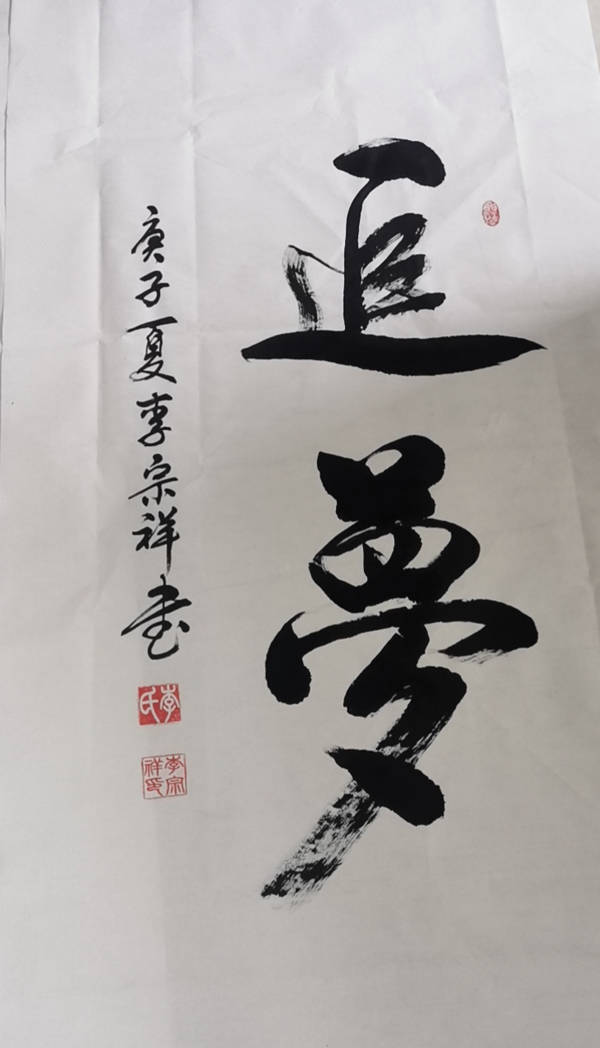 追夢
庚子夏李宗祥書
李氏
李宗祥印